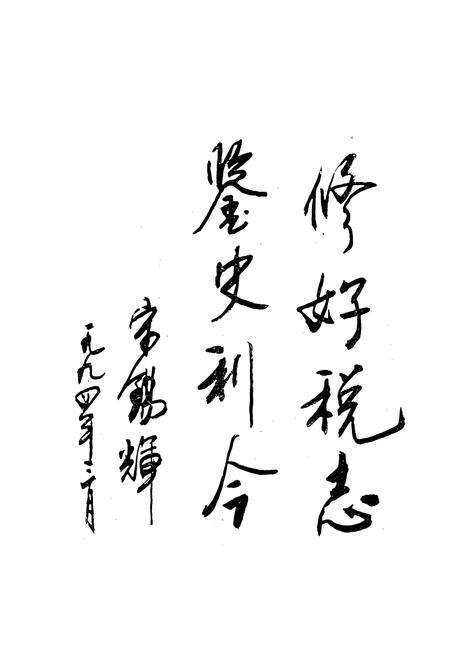 修好税志
鉴史利今
宋錫輝
一九九四年三月